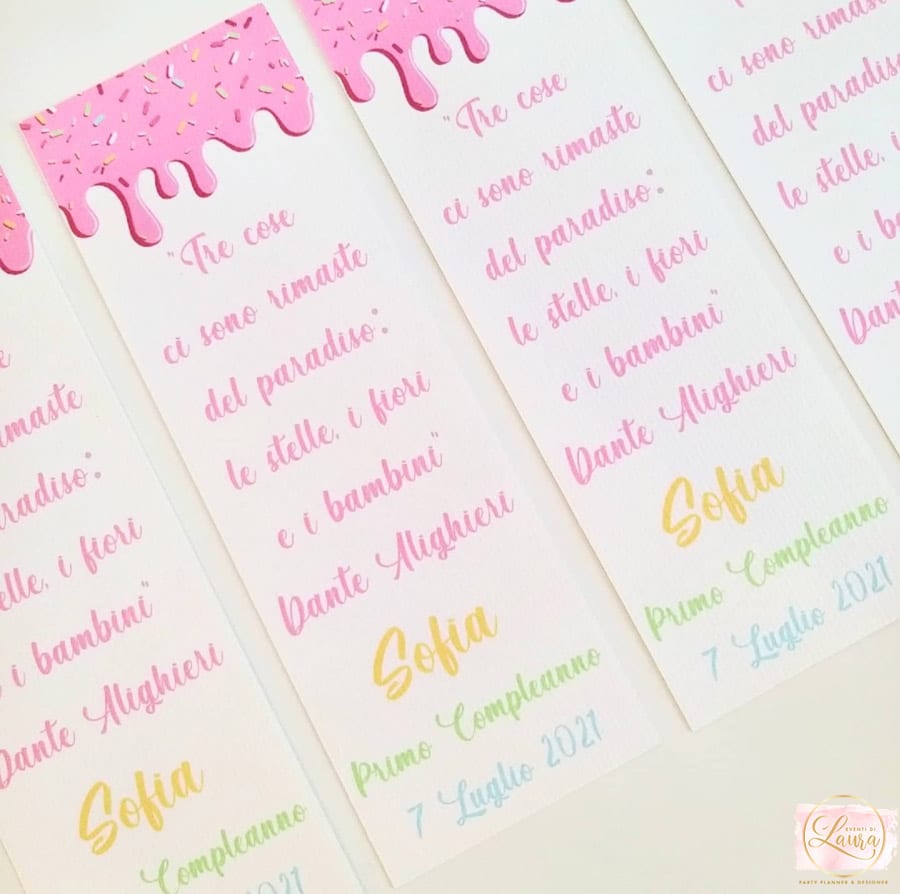 "Tre cose
ci sono rimaste
del paradiso:
le stelle, i fiori
e i bambini"
Dante Alighieri
Sofia
Primo Compleanno
7 Luglio 2021
"Tre cose
ci sono rimaste
del paradiso:
le stelle, i fiori
e i bambini"
Dante Alighieri
Sofia
Primo Compleanno
7 Luglio 2021
i fiori
i bambini"
Dante Alighieri
Sofia
Compleanno
2021
ci sono rimaste
del paradiso
le stelle, i
e i
EVENTI DI
Laura
PARTY PLANNER & DESIGNER